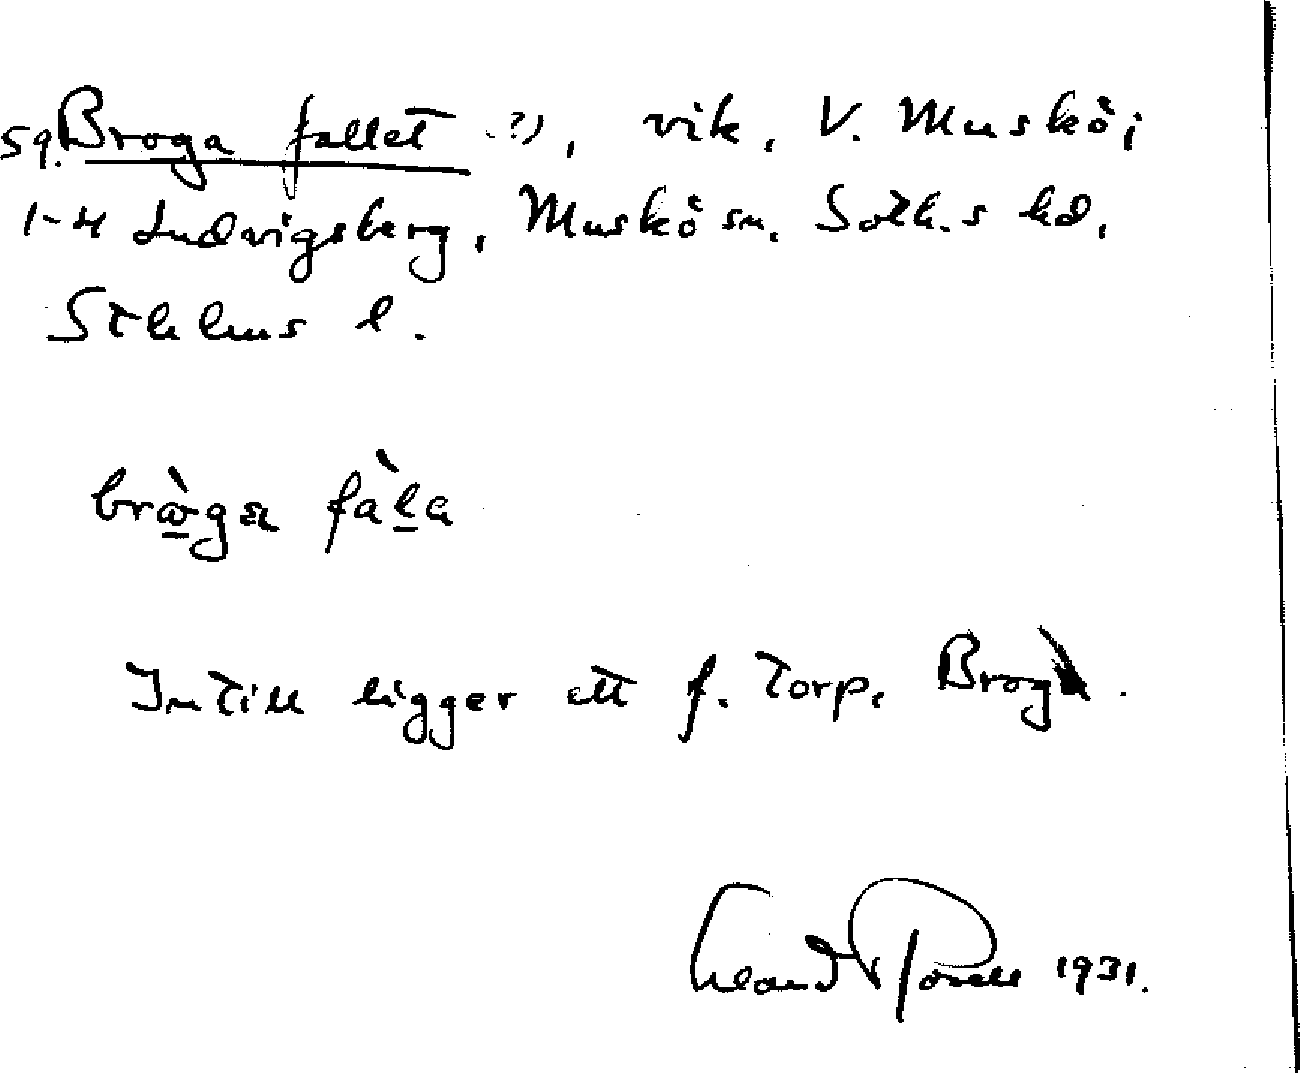 59. Broga fallet (?), vik, V. Muskö;
1-4 Ludvigsberg, Muskö sn. Soth.s hd,
Sthlms l.
bròga fàla
Intill ligger ett f. torp, Broga.
1931.